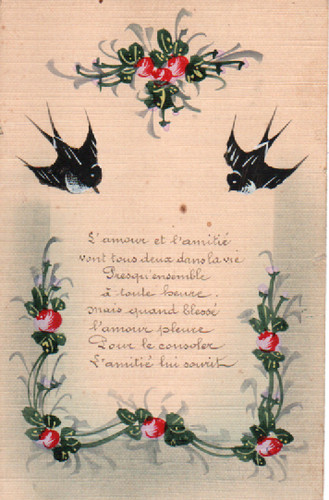 L'amour et l'amitié
vont tous deux dans la vie
Presqu'ensemble
à toute heure,
mais quand blessé
l'amour pleure
Pour le consoler
L'amitié lui sourit